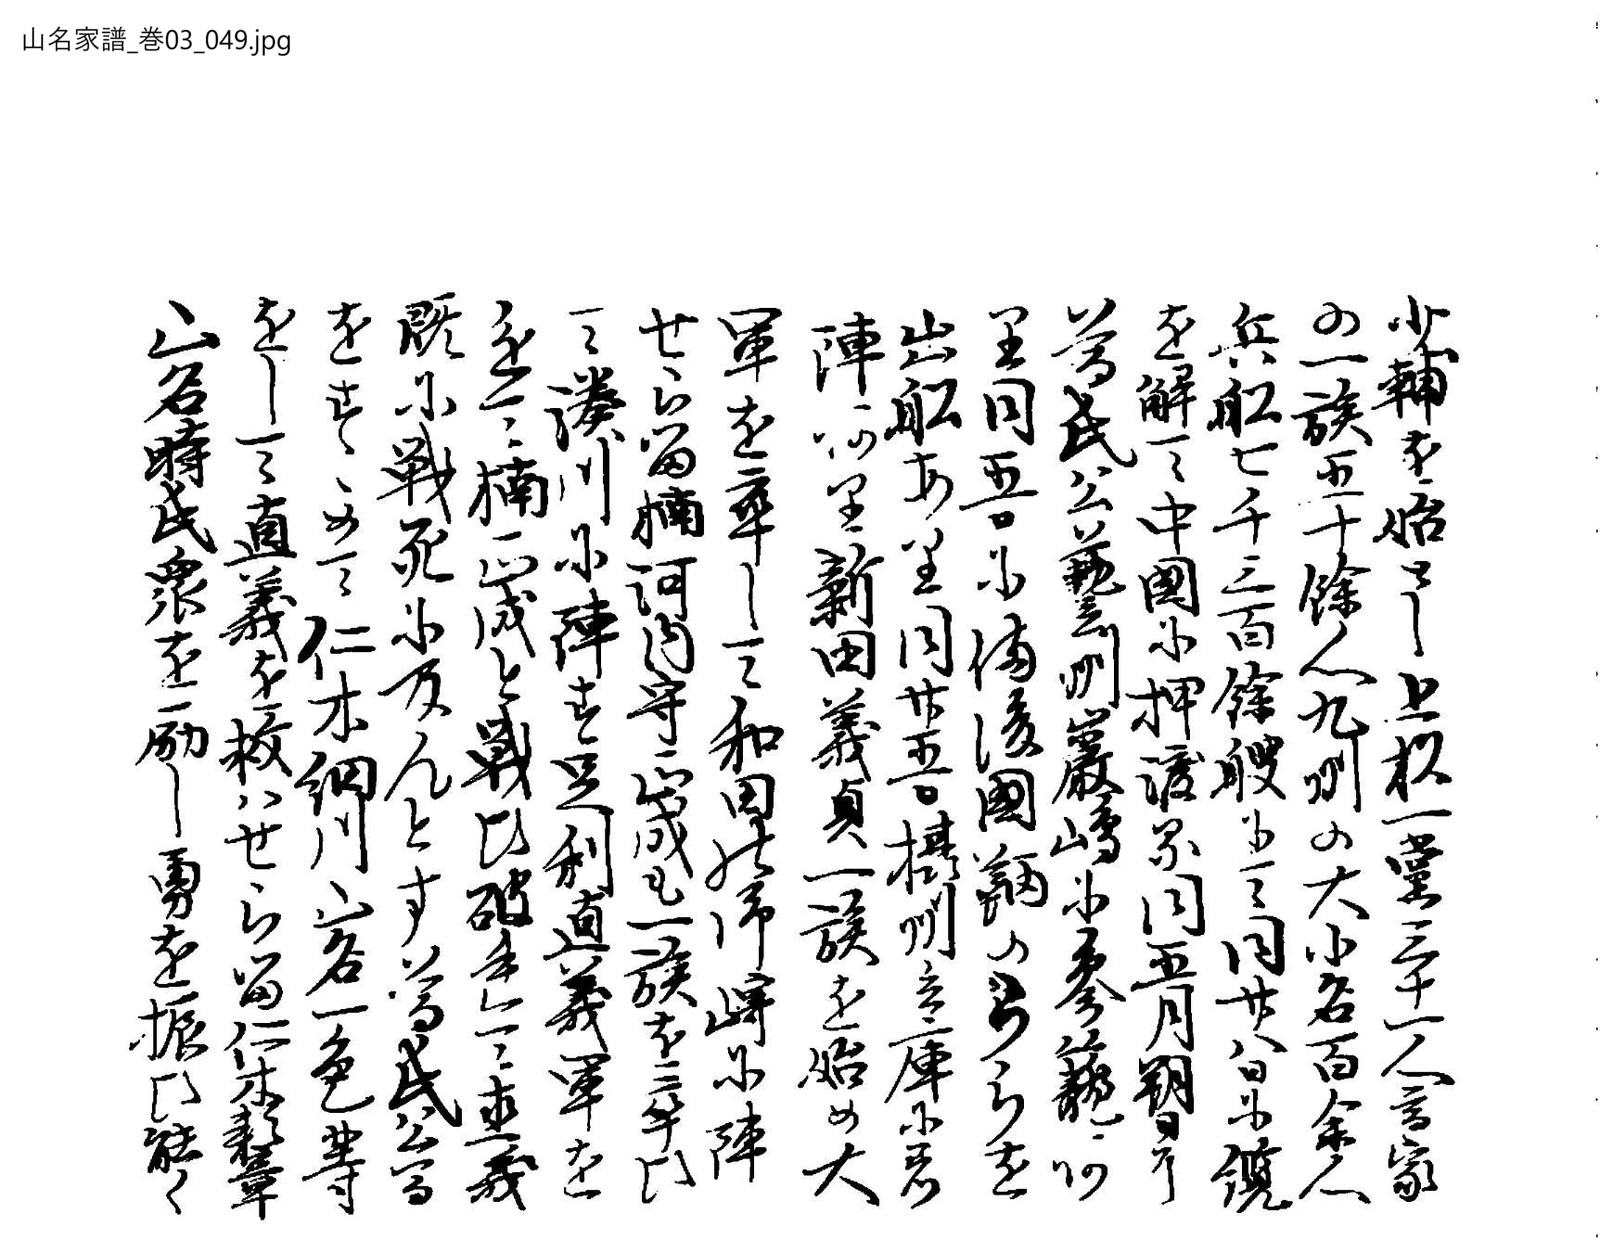 山名家譜_巻03_049.jpg
少輔を始とし上杉一黨三十一人高家
の一族五十餘人九州の大小名百余人
兵船七千三百餘艘にて同廿八日に纜
を解て中國に押渡る同五月朔日
尊氏公藝州巖嶋に参籠あ
里同五日に備後國鞆のうらを
出船あ里同廿五日攝州兵庫に着
陣あり里新田義貞一族を始め大
軍を率して和田の御崎に陣
せらる楠河内守正成も一族を率ひ
て湊川に陣す足利直義軍を
進て楠正成と戦ひ破れて直義
既に戦死に及んとす尊氏公高
をすゝめて仁木細川山名一色等
をして直義を救はせらる仁木頼章
山名時氏衆を励し勇を振ひ能く